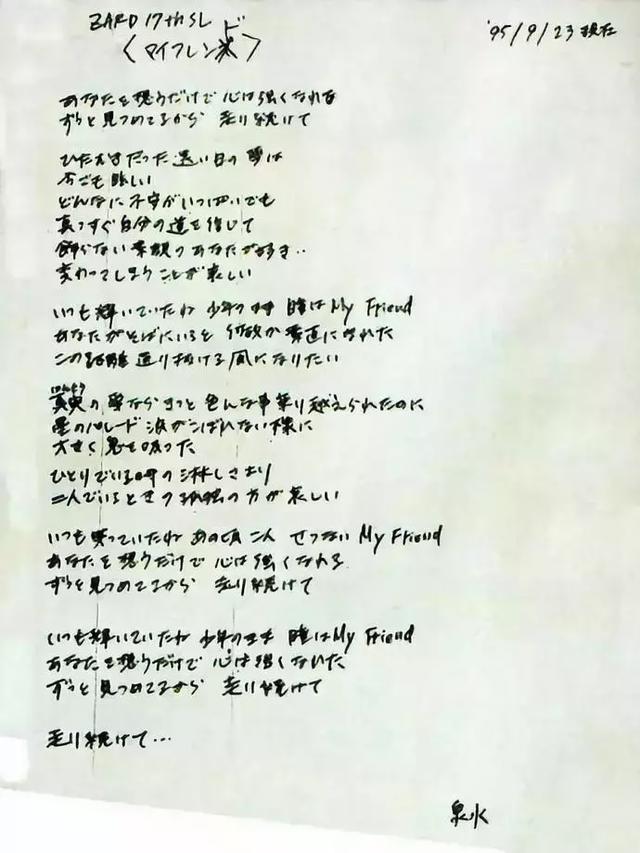 ZARD 17th SL
'95/9/23 現在
〈マイフレンド〉
あなたを想うだけで 心は強くなれる
ずっと見つめてるから 走り続けて
ひたむきだった遠い日の夢は
今でも眩しい
どんなに不安がいっぱいでも
真っすぐ自分の道を信じて
飾らない素顔のあなたが好き..
変わってしまうことが哀しい
いつも輝いていたね 少年のまま 瞳はMy Friend
あなたがそばにいると 何故か 素直になれた
この距離 通り抜ける風になりたい
真実の夢なら きっと 色んな事 乗り越えられたのに
星のパレード 涙がこぼれない様に
大きく息を吸った
ひとりでいる時の淋しさより
二人でいるときの孤独の方が哀しい
いつも笑っていたね あの頃 二人 せつない My Friend
あなたを想うだけで 心は強くなれる
ずっと見つめてるから 走り続けて
いつも輝いていたね 少年のまま 瞳はMy Friend
あなたを想うだけで 心は強くなれた
ずっと見つめてるから 走り続けて
走り続けて…
泉水